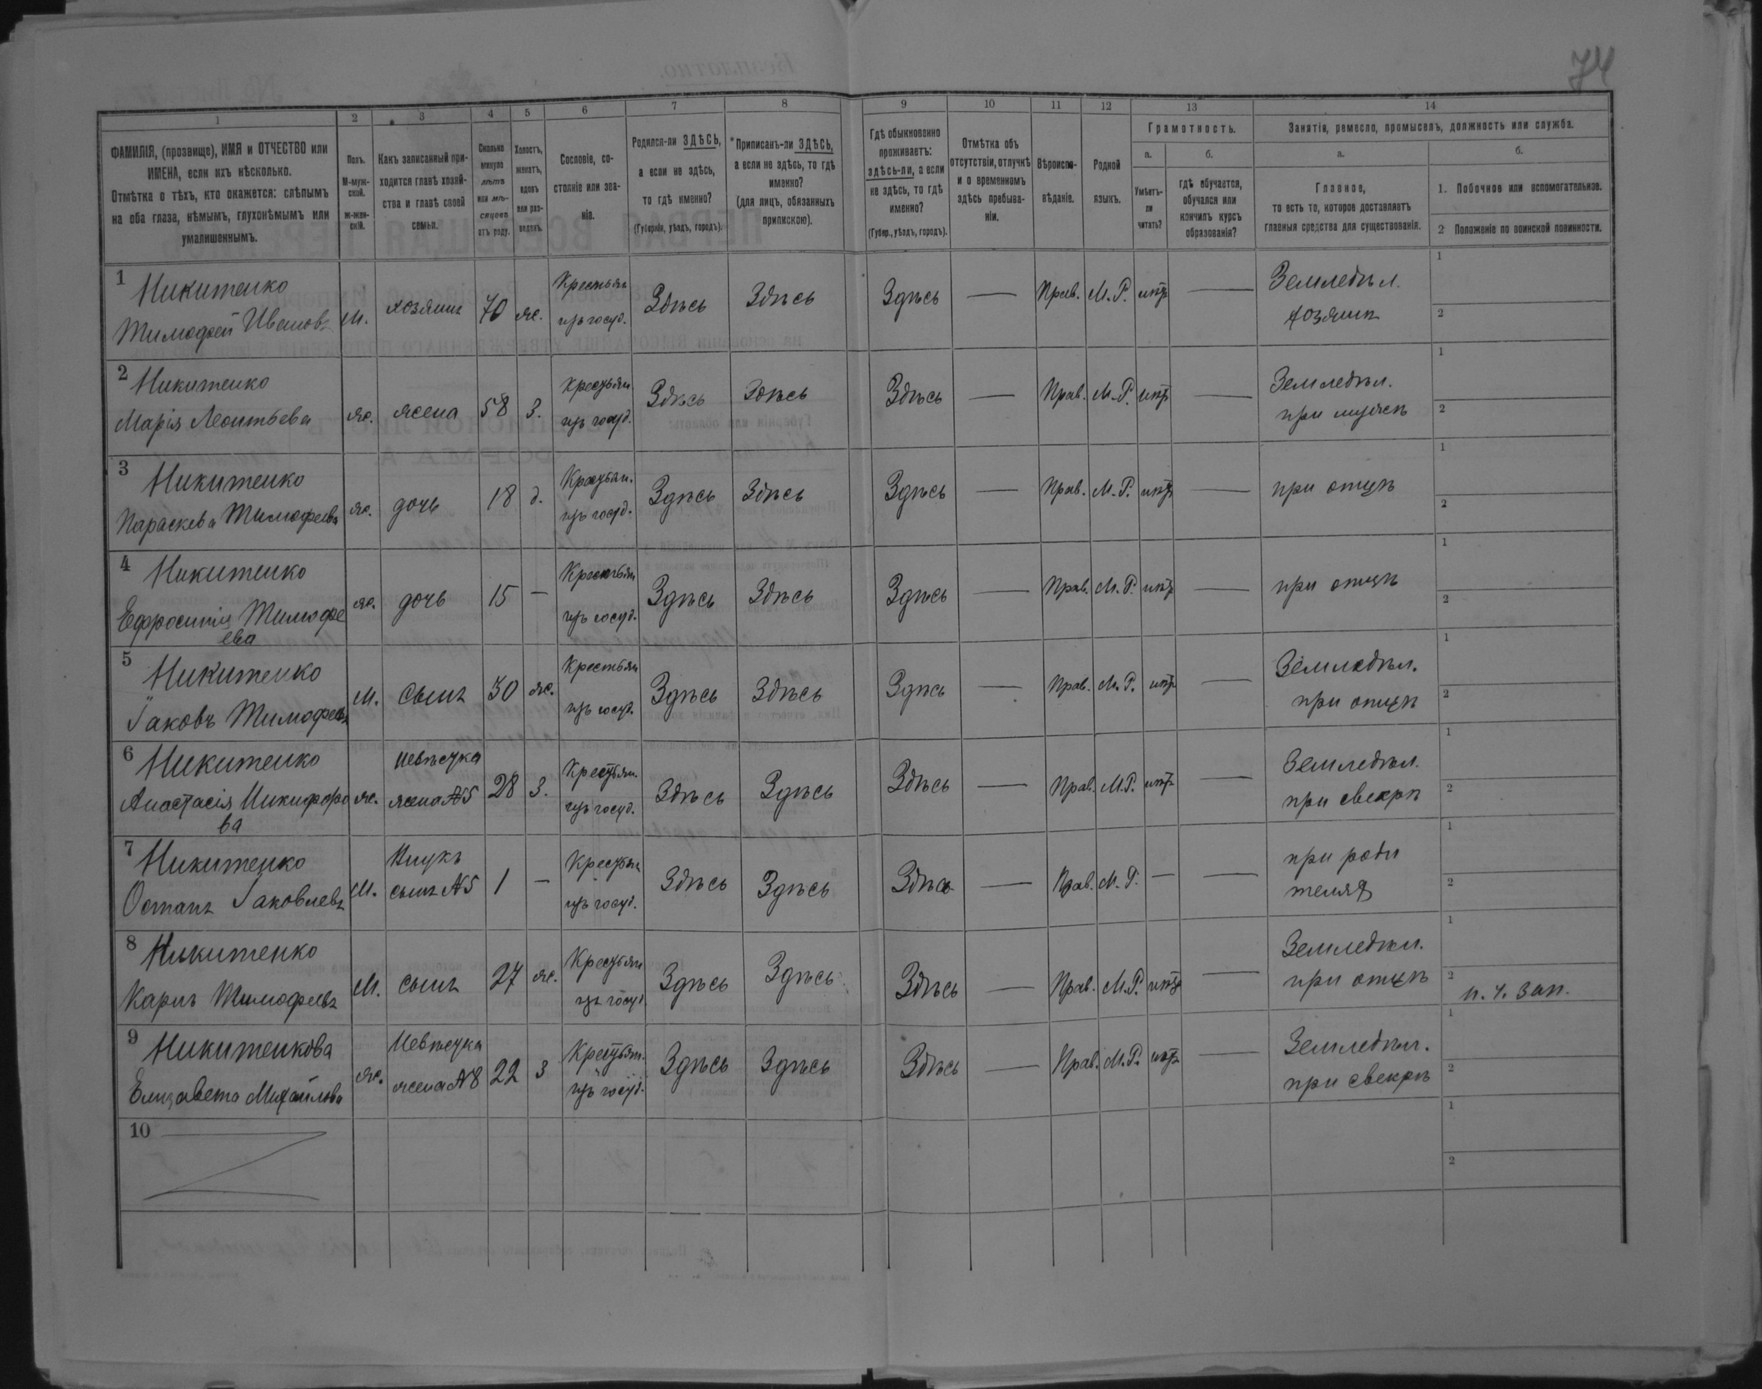 74
1
2
3
4
5
6
7
8
9
10
11
12
13
14
ФАМИЛІЯ, (прозвище), ИМЯ и ОТЧЕСТВО или
ИМЕНА, если ихъ нѣсколько.
Отмѣтка о тѣхъ, кто окажется: слѣпымъ
на оба глаза, нѣмымъ, глухонѣмымъ или
умалишеннымъ.
Полъ.
М-муж-
ской.
Ж-жен-
скій.
Какъ записанный при-
ходится главѣ хозяй-
ства и главѣ своей
семьи.
Сколько
минуло
лѣтъ
или мѣ-
сяцевъ
отъ роду.
Холостъ,
женатъ,
вдовъ
или раз-
веденъ.
Сословіе, со-
стояніе или зва-
ніе.
Родился-ли ЗДѢСЬ,
а если не здѣсь,
то гдѣ именно?
(Губернія, уѣздъ, городъ).
*Приписанъ-ли ЗДѢСЬ,
а если не здѣсь, то гдѣ
именно?
(для лицъ, обязанныхъ
припискою).
Гдѣ обыкновенно
проживаетъ:
здѣсь-ли, а если
не здѣсь, то гдѣ
именно?
(Губер., уѣздъ, городъ).
Отмѣтка объ
отсутствіи, отлучкѣ
и о временномъ
здѣсь пребыва-
ніи.
Вѣроиспо-
вѣданіе.
Родной
языкъ.
Грамотность.
а.
Умѣетъ-
ли
читать?
б.
гдѣ обучается,
обучался или
кончилъ курсъ
образованія?
Занятія, ремесло, промыселъ, должность или служба.
а.
Главное,
то есть то, которое доставляетъ
главныя средства для существованія.
б.
1. Побочное или вспомогательное.
2 Положеніе по воинской повинности.
1 Никитенко
Тимофей Иванов. м. хозяинъ 70 ж. Крестьян. изъ госуд. Здѣсь Здѣсь Здѣсь — Прав. М. Р. нѣтъ — Земледѣл. 1
хозяинъ 2
2 Никитенко
Марія Леонтьева ж. жена 58 З. Крестьян. изъ госуд. Здѣсь Здѣсь Здѣсь — Прав. М. Р. нѣтъ — Земледѣл. 1
при мужѣ 2
3 Никитенко
Параскева Тимофеева ж. дочь 18 д. Крестьян. изъ госуд. Здѣсь Здѣсь Здѣсь — Прав. М. Р. нѣтъ — при отцѣ 1
2
4 Никитенко
Ефросинія Тимофе
ева ж. дочь 15 — Крестьян изъ госуд. Здѣсь Здѣсь Здѣсь — Прав. М. Р. нѣтъ — при отцѣ 1
2
5 Никитенко
Іаковъ Тимофеевъ м. сынъ 30 ж. Крестьян изъ госуд. Здѣсь Здѣсь Здѣсь — Прав. М. Р. нѣтъ — Земледѣл. 1
при отцѣ 2
6 Никитенко невѣстка
Анастасія Никифоро
ва ж. жена №5 28 З. Крестьян. изъ госуд. Здѣсь Здѣсь Здѣсь — Прав. М. Р. нѣтъ — Земледѣл. 1
при свекрѣ 2
7 Никитенко Внукъ
Остапъ Іаковлевъ м. сынъ №5 1 — Крестьян изъ госуд. Здѣсь Здѣсь Здѣсь — Прав. М. Р. — — при роди 1
теляхъ 2
8 Никитенко
Карпъ Тимофеевъ м. сынъ 27 ж. Крестьян изъ госуд. Здѣсь Здѣсь Здѣсь — Прав. М. Р. нѣтъ — Земледѣл. 1
при отцѣ 2 н. ч. зап.
9 Никитенкова Невѣстка
Елизавета Михайлова ж. жена №8 22 З Крестьян. изъ госуд. Здѣсь Здѣсь Здѣсь — Прав. М. Р. нѣтъ — Земледѣл. 1
при свекрѣ 2
10
1
2